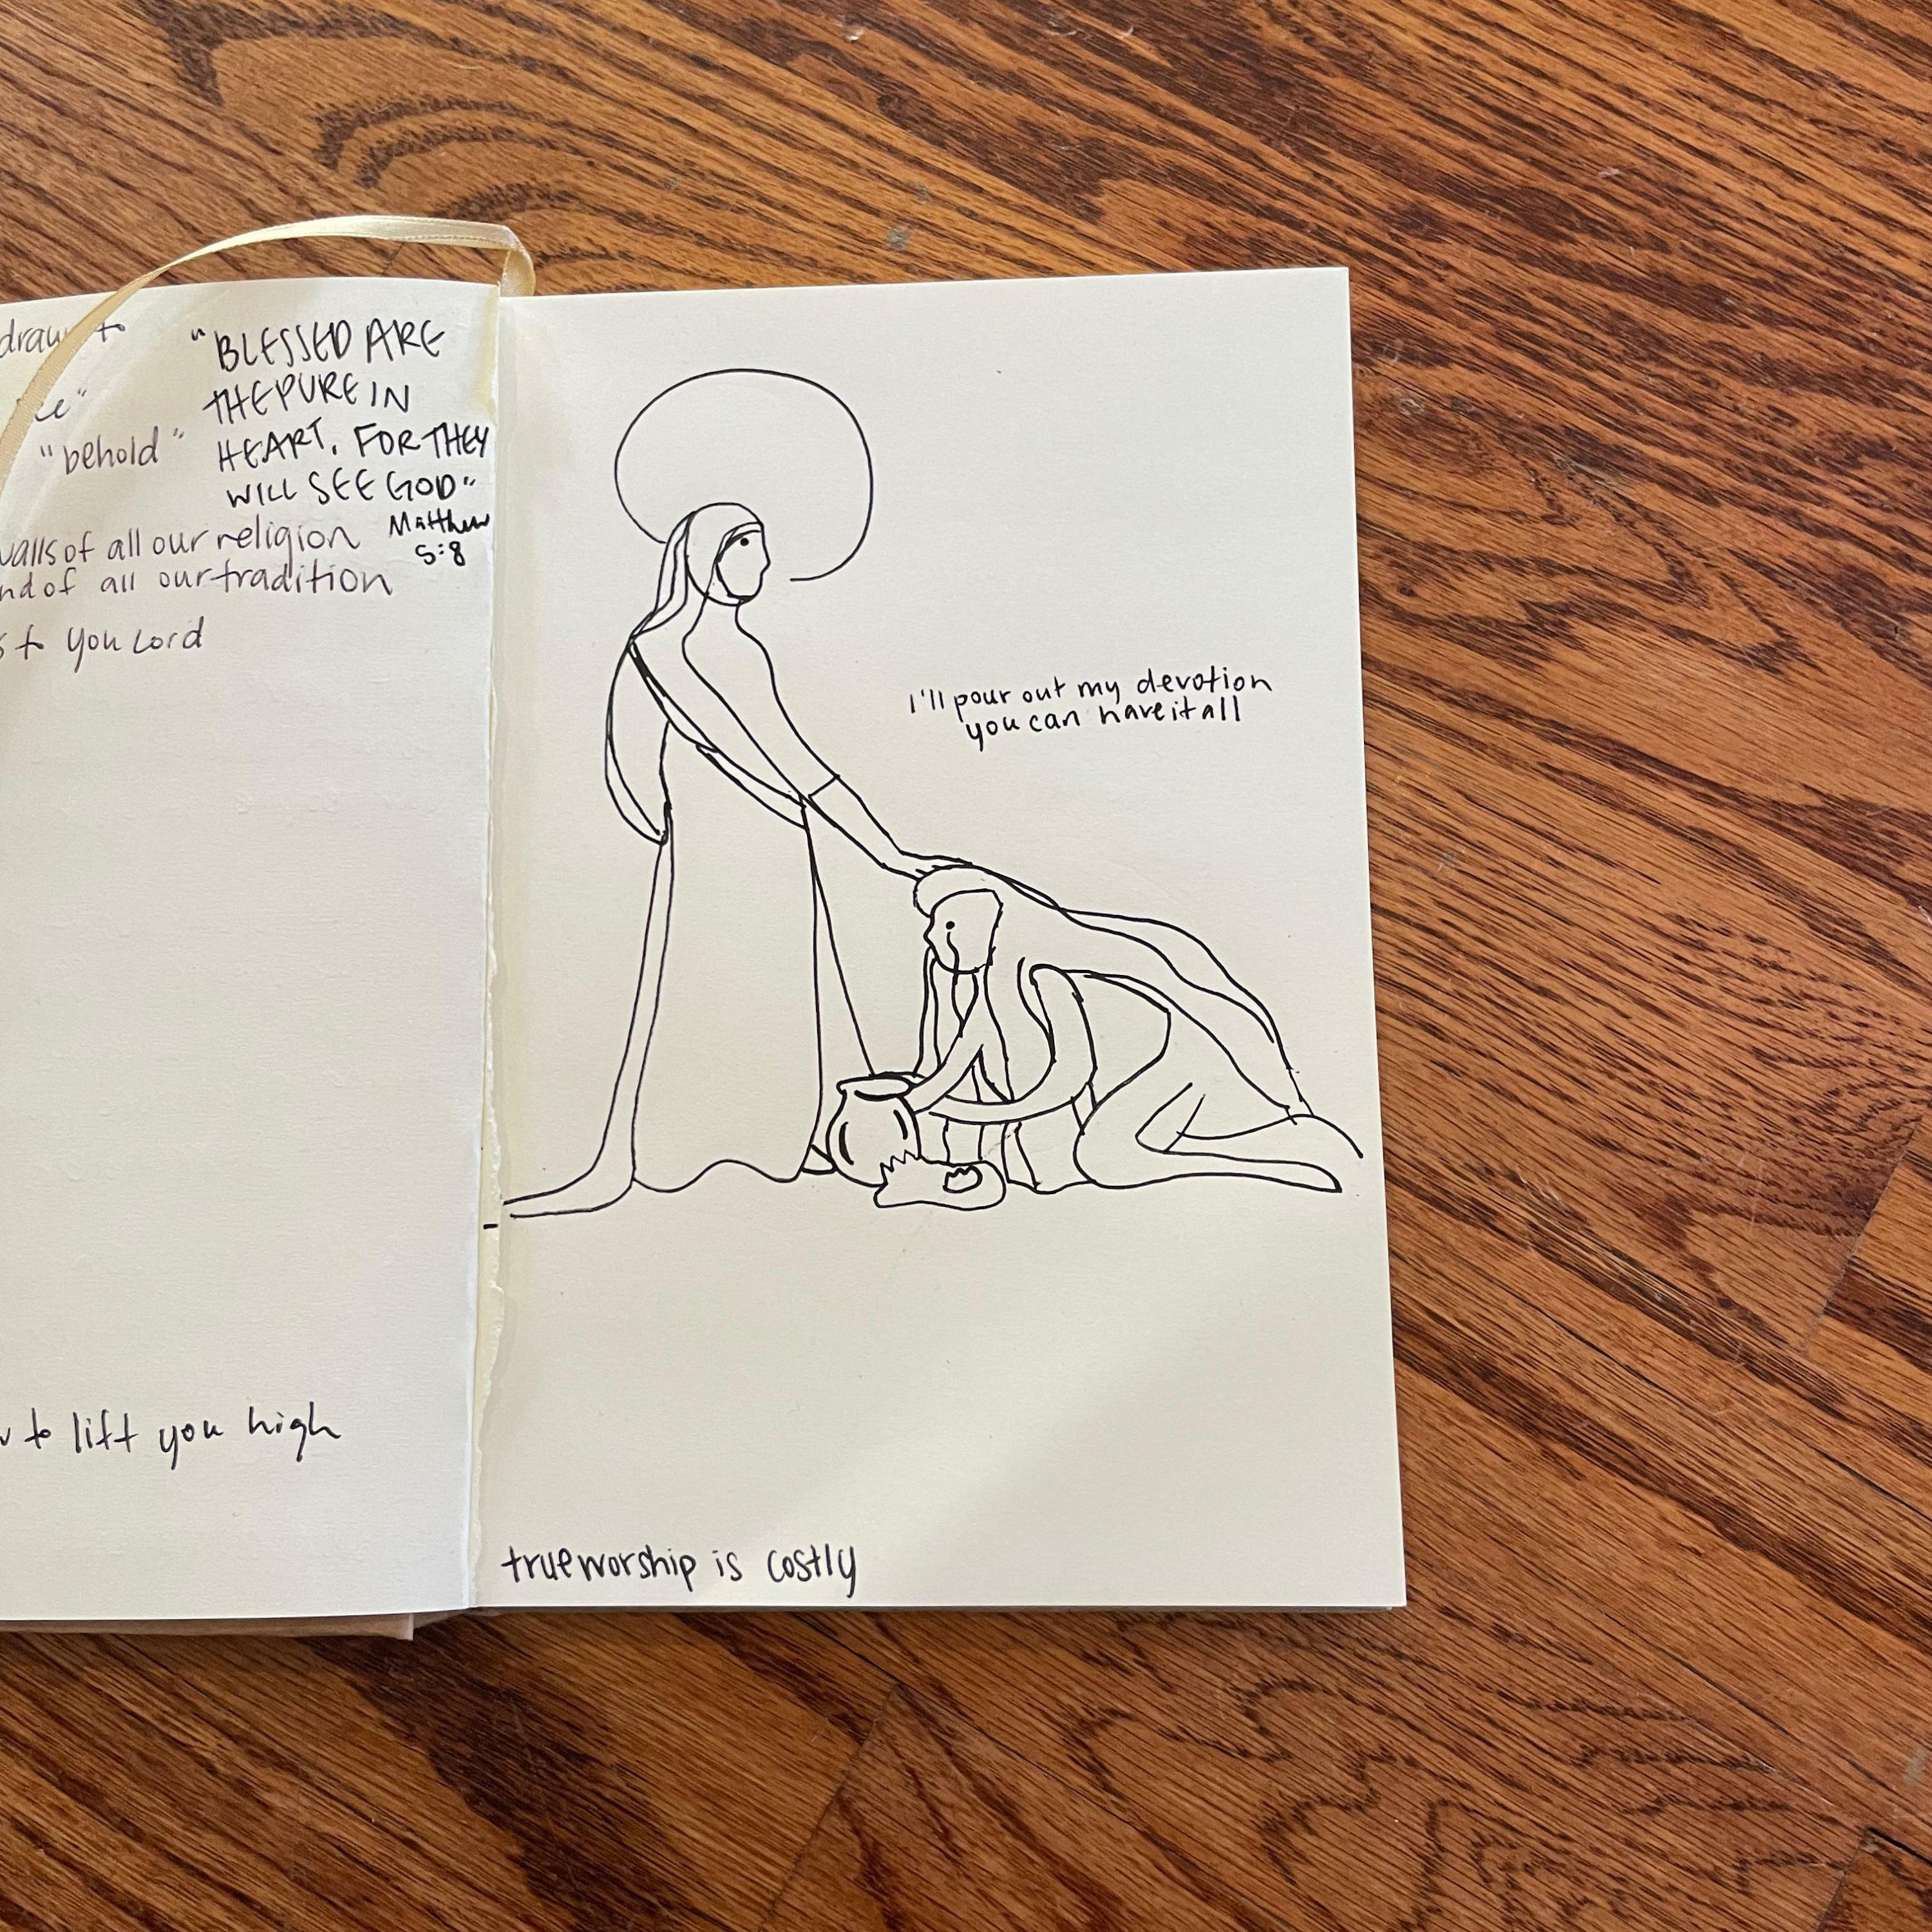 draw to
"BLESSED ARE
THE PURE IN
HEART, FOR THEY
WILL SEE GOD"
Matthew
5:8
"behold"
walls of all our religion
of all our tradition
to you Lord
to lift you high
I'll pour out my devotion
you can have it all
true worship is costly